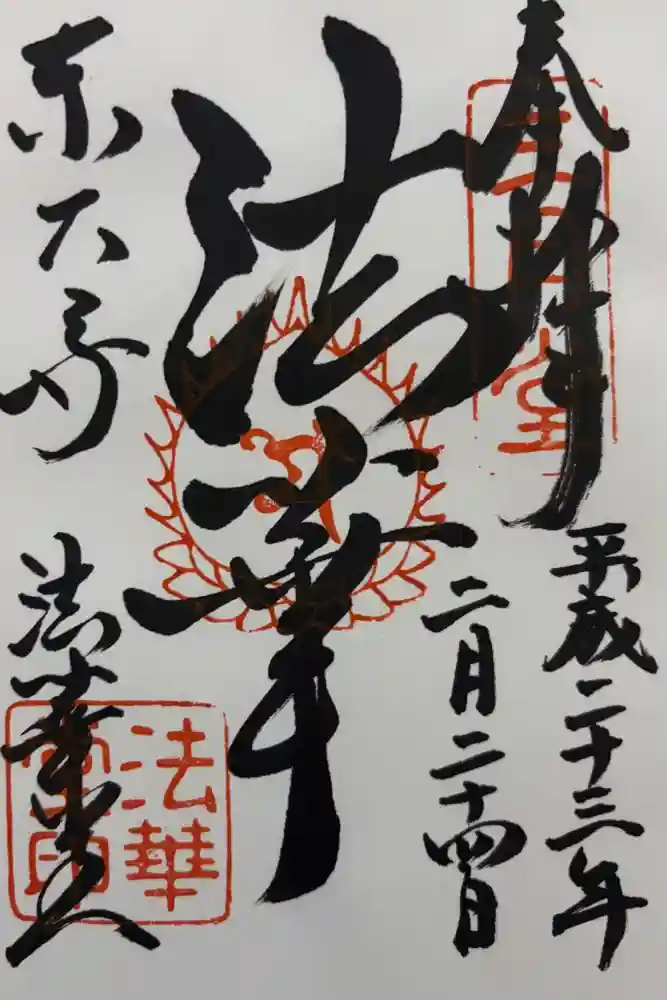 奉拝
三月堂
平成二十三年
二月二十四日
法華
東大寺
法華堂
法華
堂印